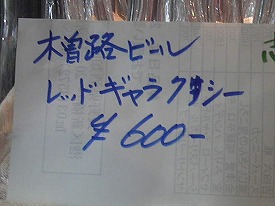 木曽路ビール
レッドギャラクシー
¥600-